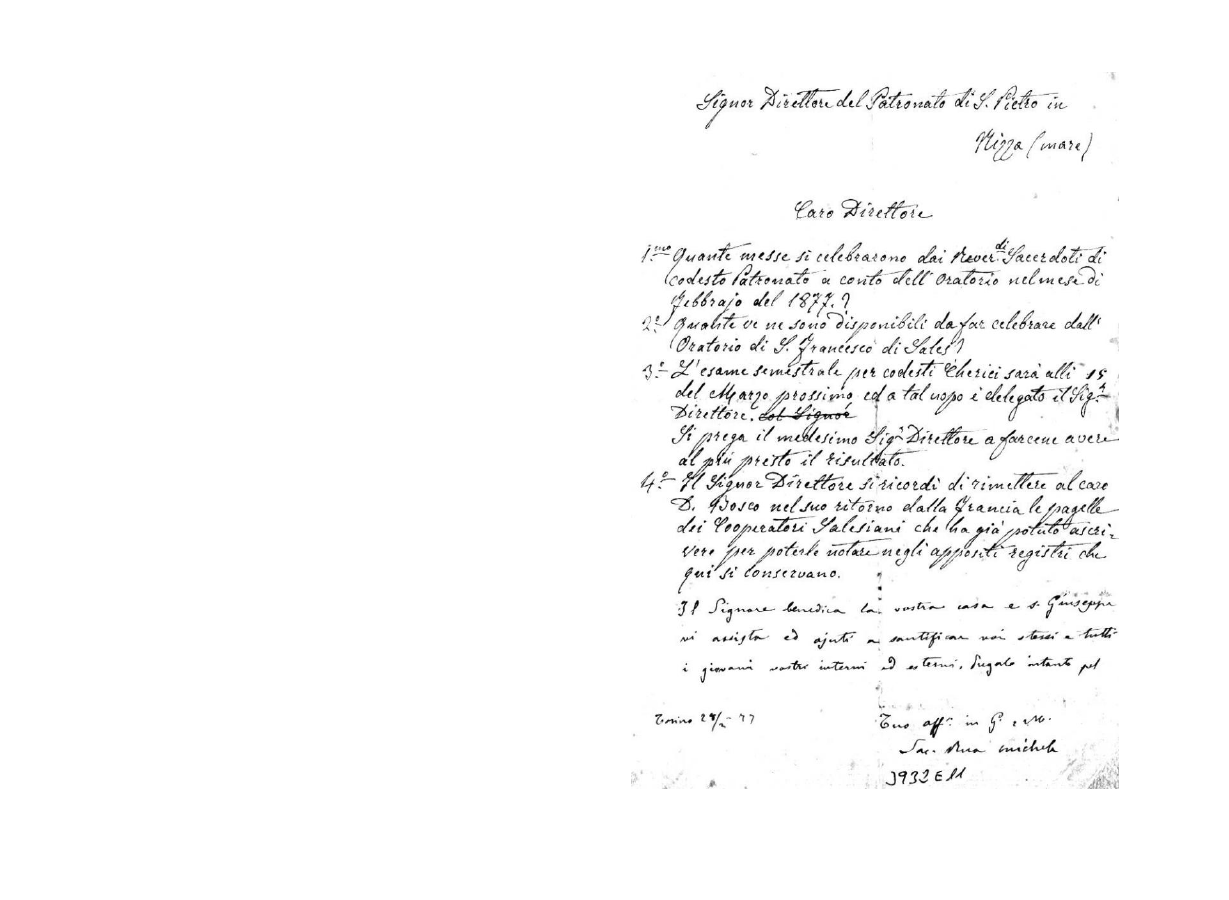 Signor Direttore del Patronato di S. Pietro in
Nizza (mare)
Caro Direttore
1.mo Quante messe si celebrarono dai Rever.di Sacerdoti di
codesto Patronato a conto dell'Oratorio nel mese di
Febbrajo del 1877.?
2.o Quante ve ne sono disponibili da far celebrare dall'
Oratorio di S. Francesco di Sales?
3.o L'esame semestrale per codesti Cherici sarà alli 15
del Marzo prossimo ed a tal uopo è delegato il Sig.r
Direttore. col Signor
Si prega il medesimo Sig.r Direttore a farcene avere
al più presto il risultato.
4.o Il Signor Direttore si ricordi di rimettere al caro
D. Bosco nel suo ritorno dalla Francia le pagelle
dei Cooperatori Salesiani che ha già potuto ascri-
vere per poterle notare negli appositi registri che
qui si conservano.
Il Signore benedica la vostra casa e s. Giuseppe
vi assista ed ajuti a santificar voi stessi e tutti
i giovani vostri interni ed esterni. intanto pel
Torino 77
Tuo aff. in G. e M.
Sac. Rua Michele
3932 E 11